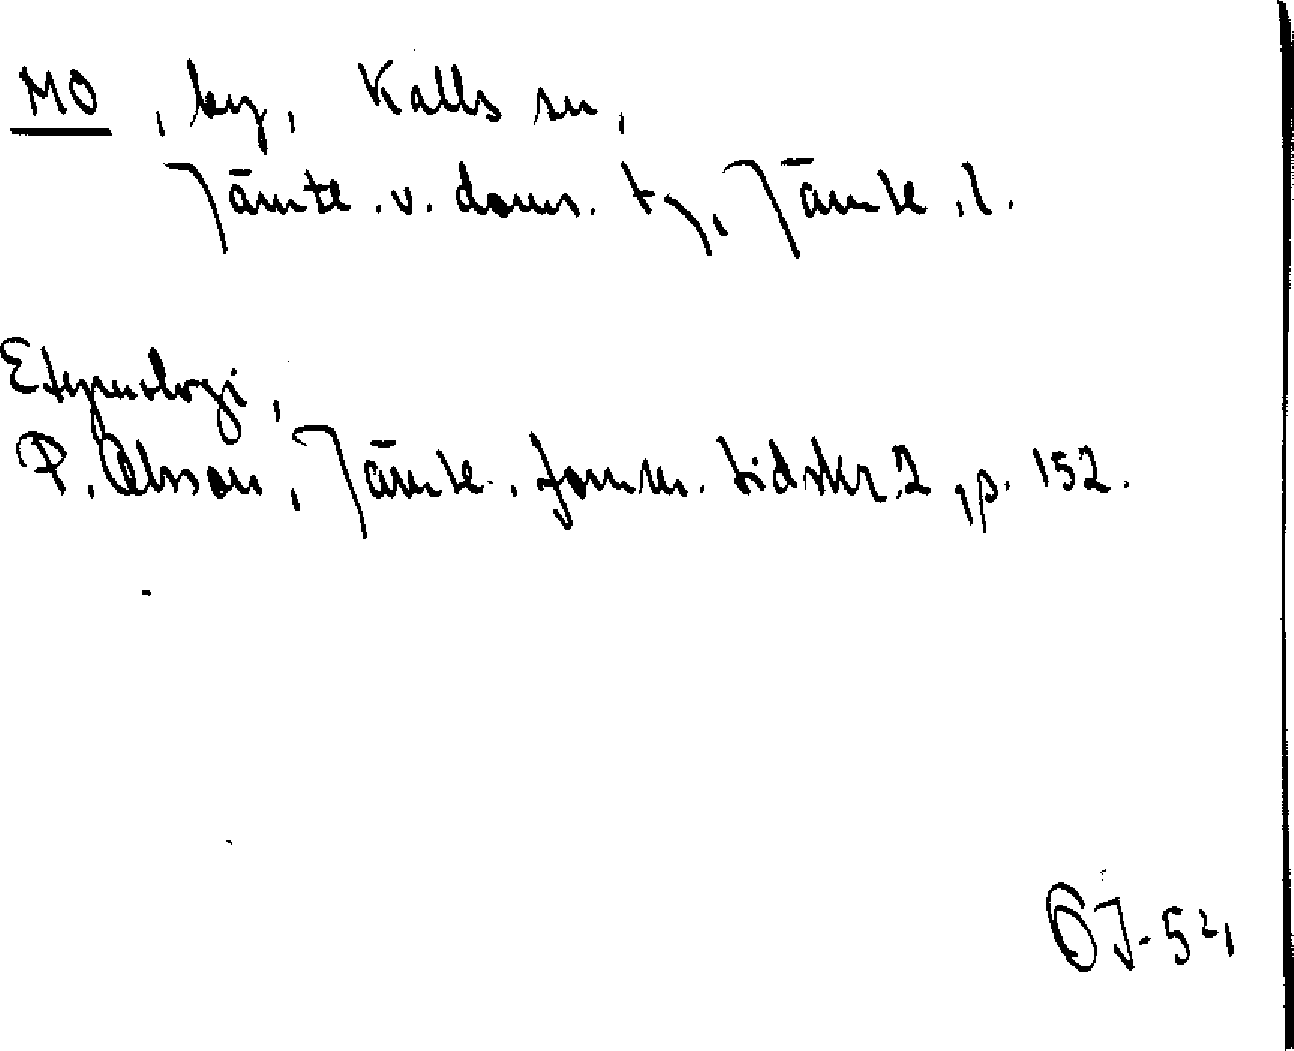 MO, by, Kalls sn,
Jämtl. v. doms. tg, Jämtl. l.
Etymologi,
P. Olsson, Jämtl. fornm. tidskr. 2, p. 152.